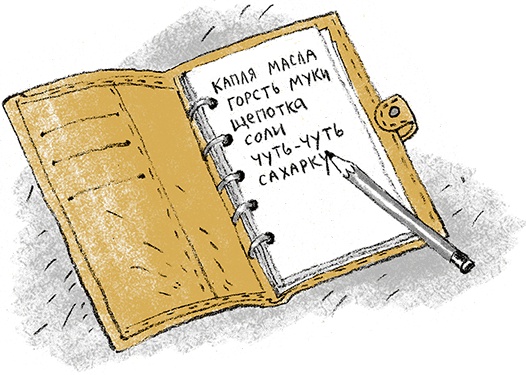 КАПЛЯ МАСЛА
ГОРСТЬ МУКИ
ЩЕПОТКА
СОЛИ
ЧУТЬ-ЧУТЬ
САХАРКУ